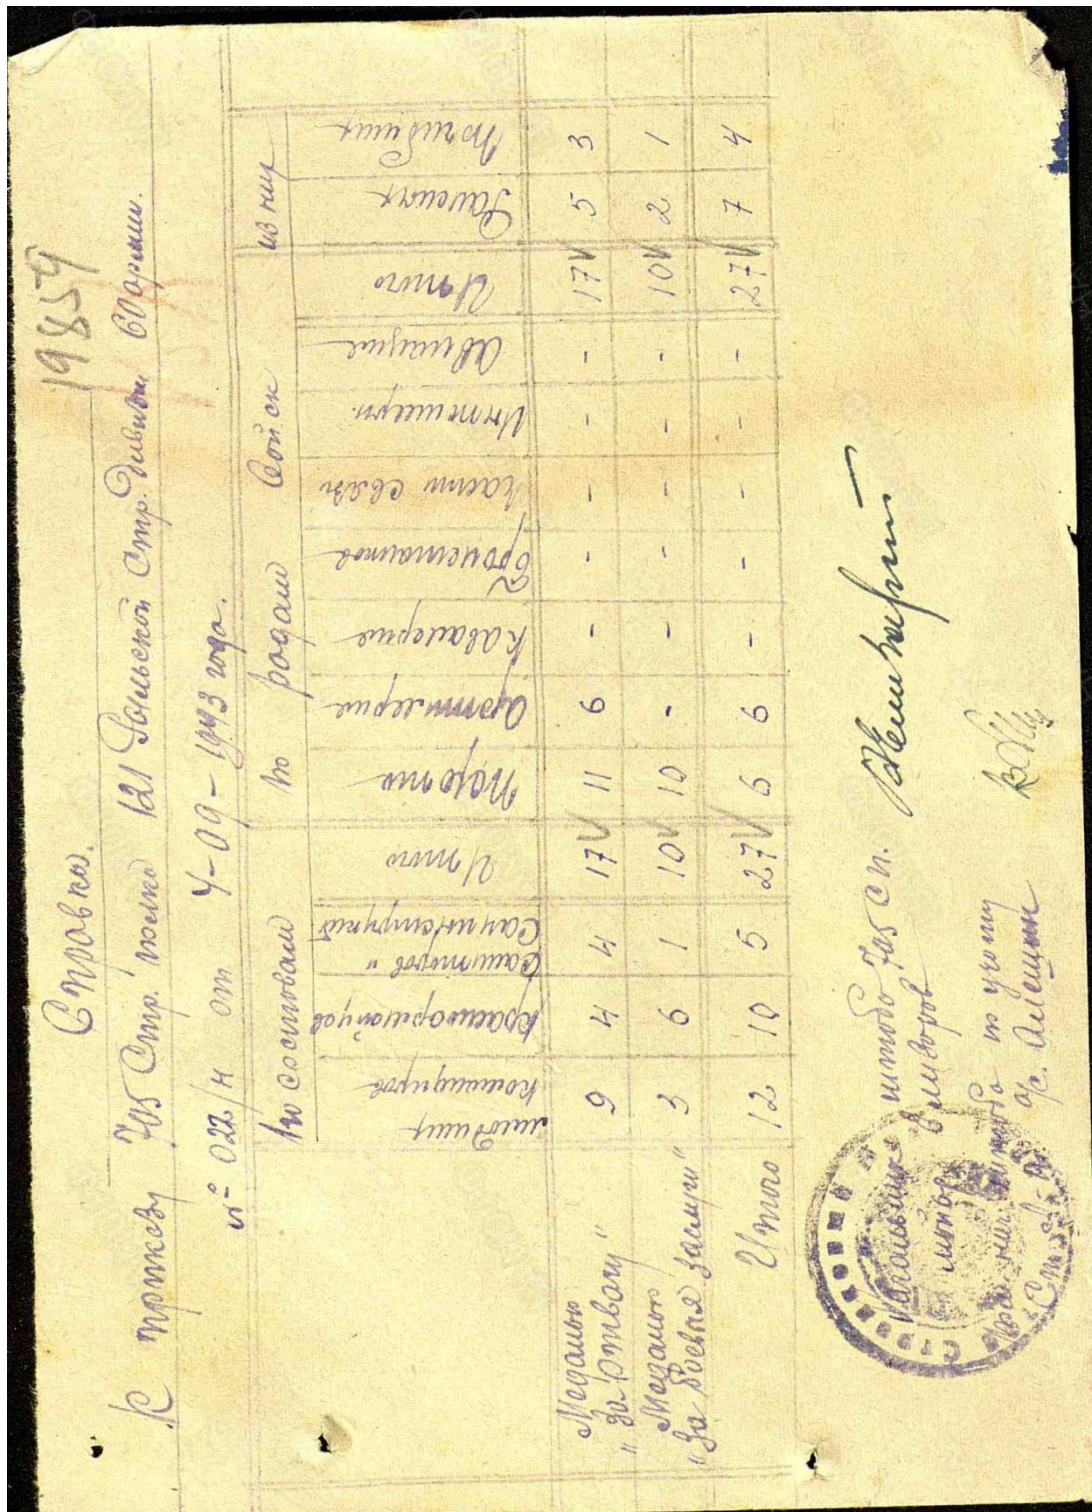 19854
Справка.
К приказу 705 Стр. полка 121 Рыльской Стр. дивизии 60 армии.
№ 022/н от 4-09-1943 года.
по составам по родам войск из них
младших командиров Красноармейцев Санитаров и Санинструкт. Итого Пехота Артилерия Кавалерия Бронетанков Части связи Интендан. Авиация Итого Раненых Погибших
Медалью
"За Отвагу" 9 4 4 17 V 11 6 - - - - - 17 V 5 3
Медалью
"За боевые заслуги" 3 6 1 10 V 10 - - - - - - 10 V 2 1
Итого 12 10 5 27 V 6 6 - - - - - 27 V 7 4
Начальник штаба 705 СП.
майор
Пом нач штаба по учету
Ст. л-т а/с. Алешин